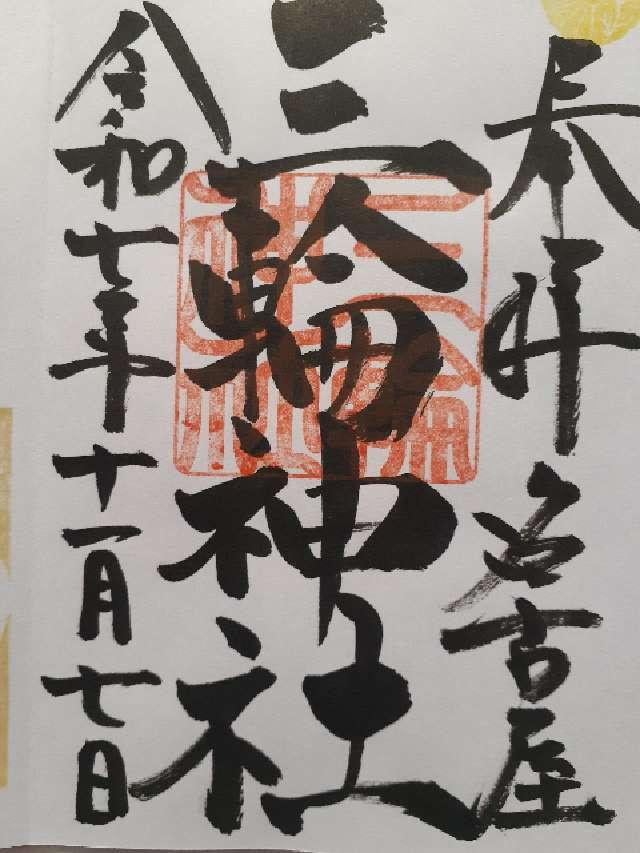 奉拝 名古屋
三輪神社
令和七年十一月七日
三輪神社